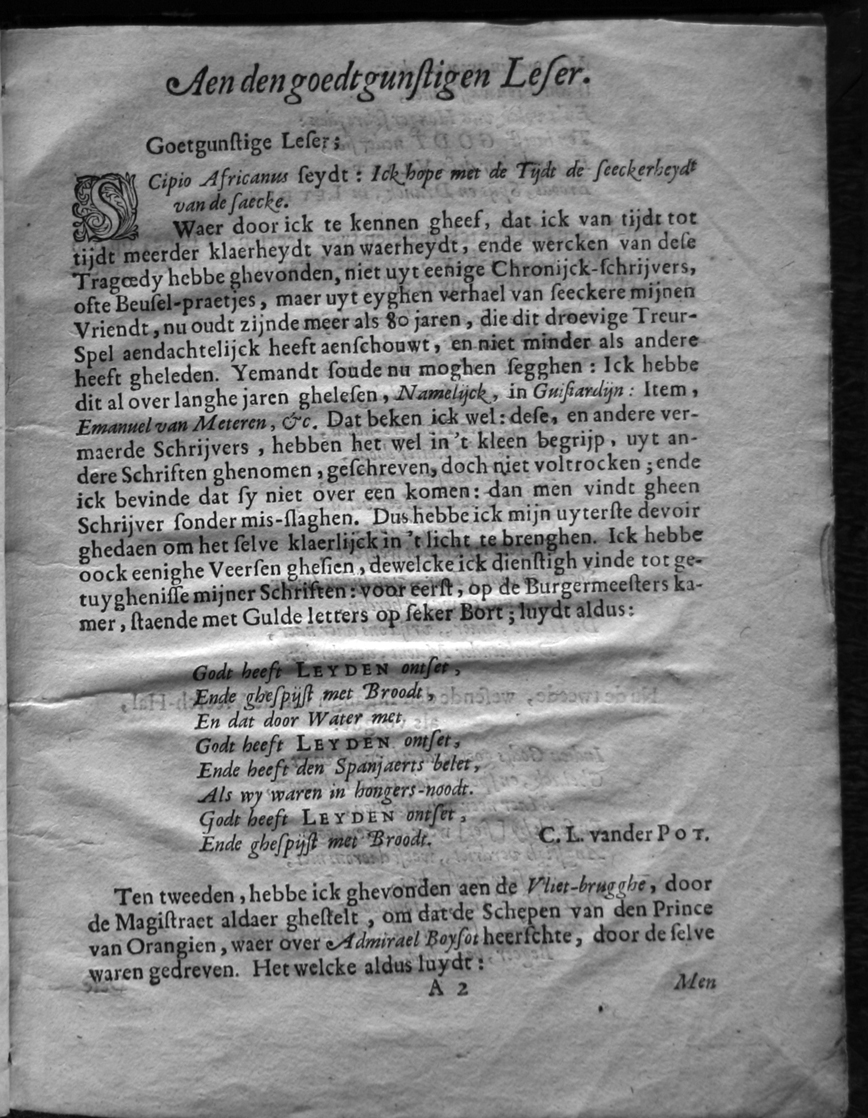 Aen den goedtgunſtigen Leſer.
Goetgunſtige Leſer;
SCipio Africanus ſeydt : Ick hope met de Tijdt de ſeeckerheydt
van de ſaecke.
Waer door ick te kennen gheef, dat ick van tijdt tot
tijdt meerder klaerheydt van waerheydt, ende wercken van deſe
Tragœdy hebbe ghevonden, niet uyt eenige Chronijck-ſchrijvers,
ofte Beuſel-praetjes, maer uyt eyghen verhael van ſeeckere mijnen
Vriendt, nu oudt zijnde meer als 80 jaren, die dit droevige Treur-
Spel aendachtelijck heeft aenſchouwt, en niet minder als andere
heeft gheleden. Yemandt ſoude nu moghen ſegghen : Ick hebbe
dit al over langhe jaren gheleſen, Namelijck, in Guiſiardijn : Item,
Emanuel van Meteren, &c. Dat beken ick wel : deſe, en andere ver-
maerde Schrijvers, hebben het wel in 't kleen begrijp, uyt an-
dere Schriften ghenomen, geſchreven, doch niet voltrocken ; ende
ick bevinde dat ſy niet over een komen : dan men vindt gheen
Schrijver ſonder mis-ſlaghen. Dus hebbe ick mijn uyterſte devoir
ghedaen om het ſelve klaerlijck in 't licht te brenghen. Ick hebbe
oock eenighe Veerſen gheſien, dewelcke ick dienſtigh vinde tot ge-
tuygheniſſe mijner Schriften : voor eerſt, op de Burgermeeſters ka-
mer, ſtaende met Gulde letters op ſeker Bort ; luydt aldus :
Godt heeft LEYDEN ontſet,
Ende gheſpijſt met Broodt,
En dat door Water met,
Godt heeft LEYDEN ontſet,
Ende heeft den Spanjaerts belet,
Als wy waren in hongers-noodt.
Godt heeft LEYDEN ontſet,
Ende gheſpijſt met Broodt.
C. L. vander POT.
Ten tweeden, hebbe ick ghevonden aen de Vliet-brugghe, door
de Magiſtraet aldaer gheſtelt, om dat de Schepen van den Prince
van Orangien, waer over Admirael Boyſot heerſchte, door de ſelve
waren gedreven. Het welcke aldus luydt :
A 2
Men